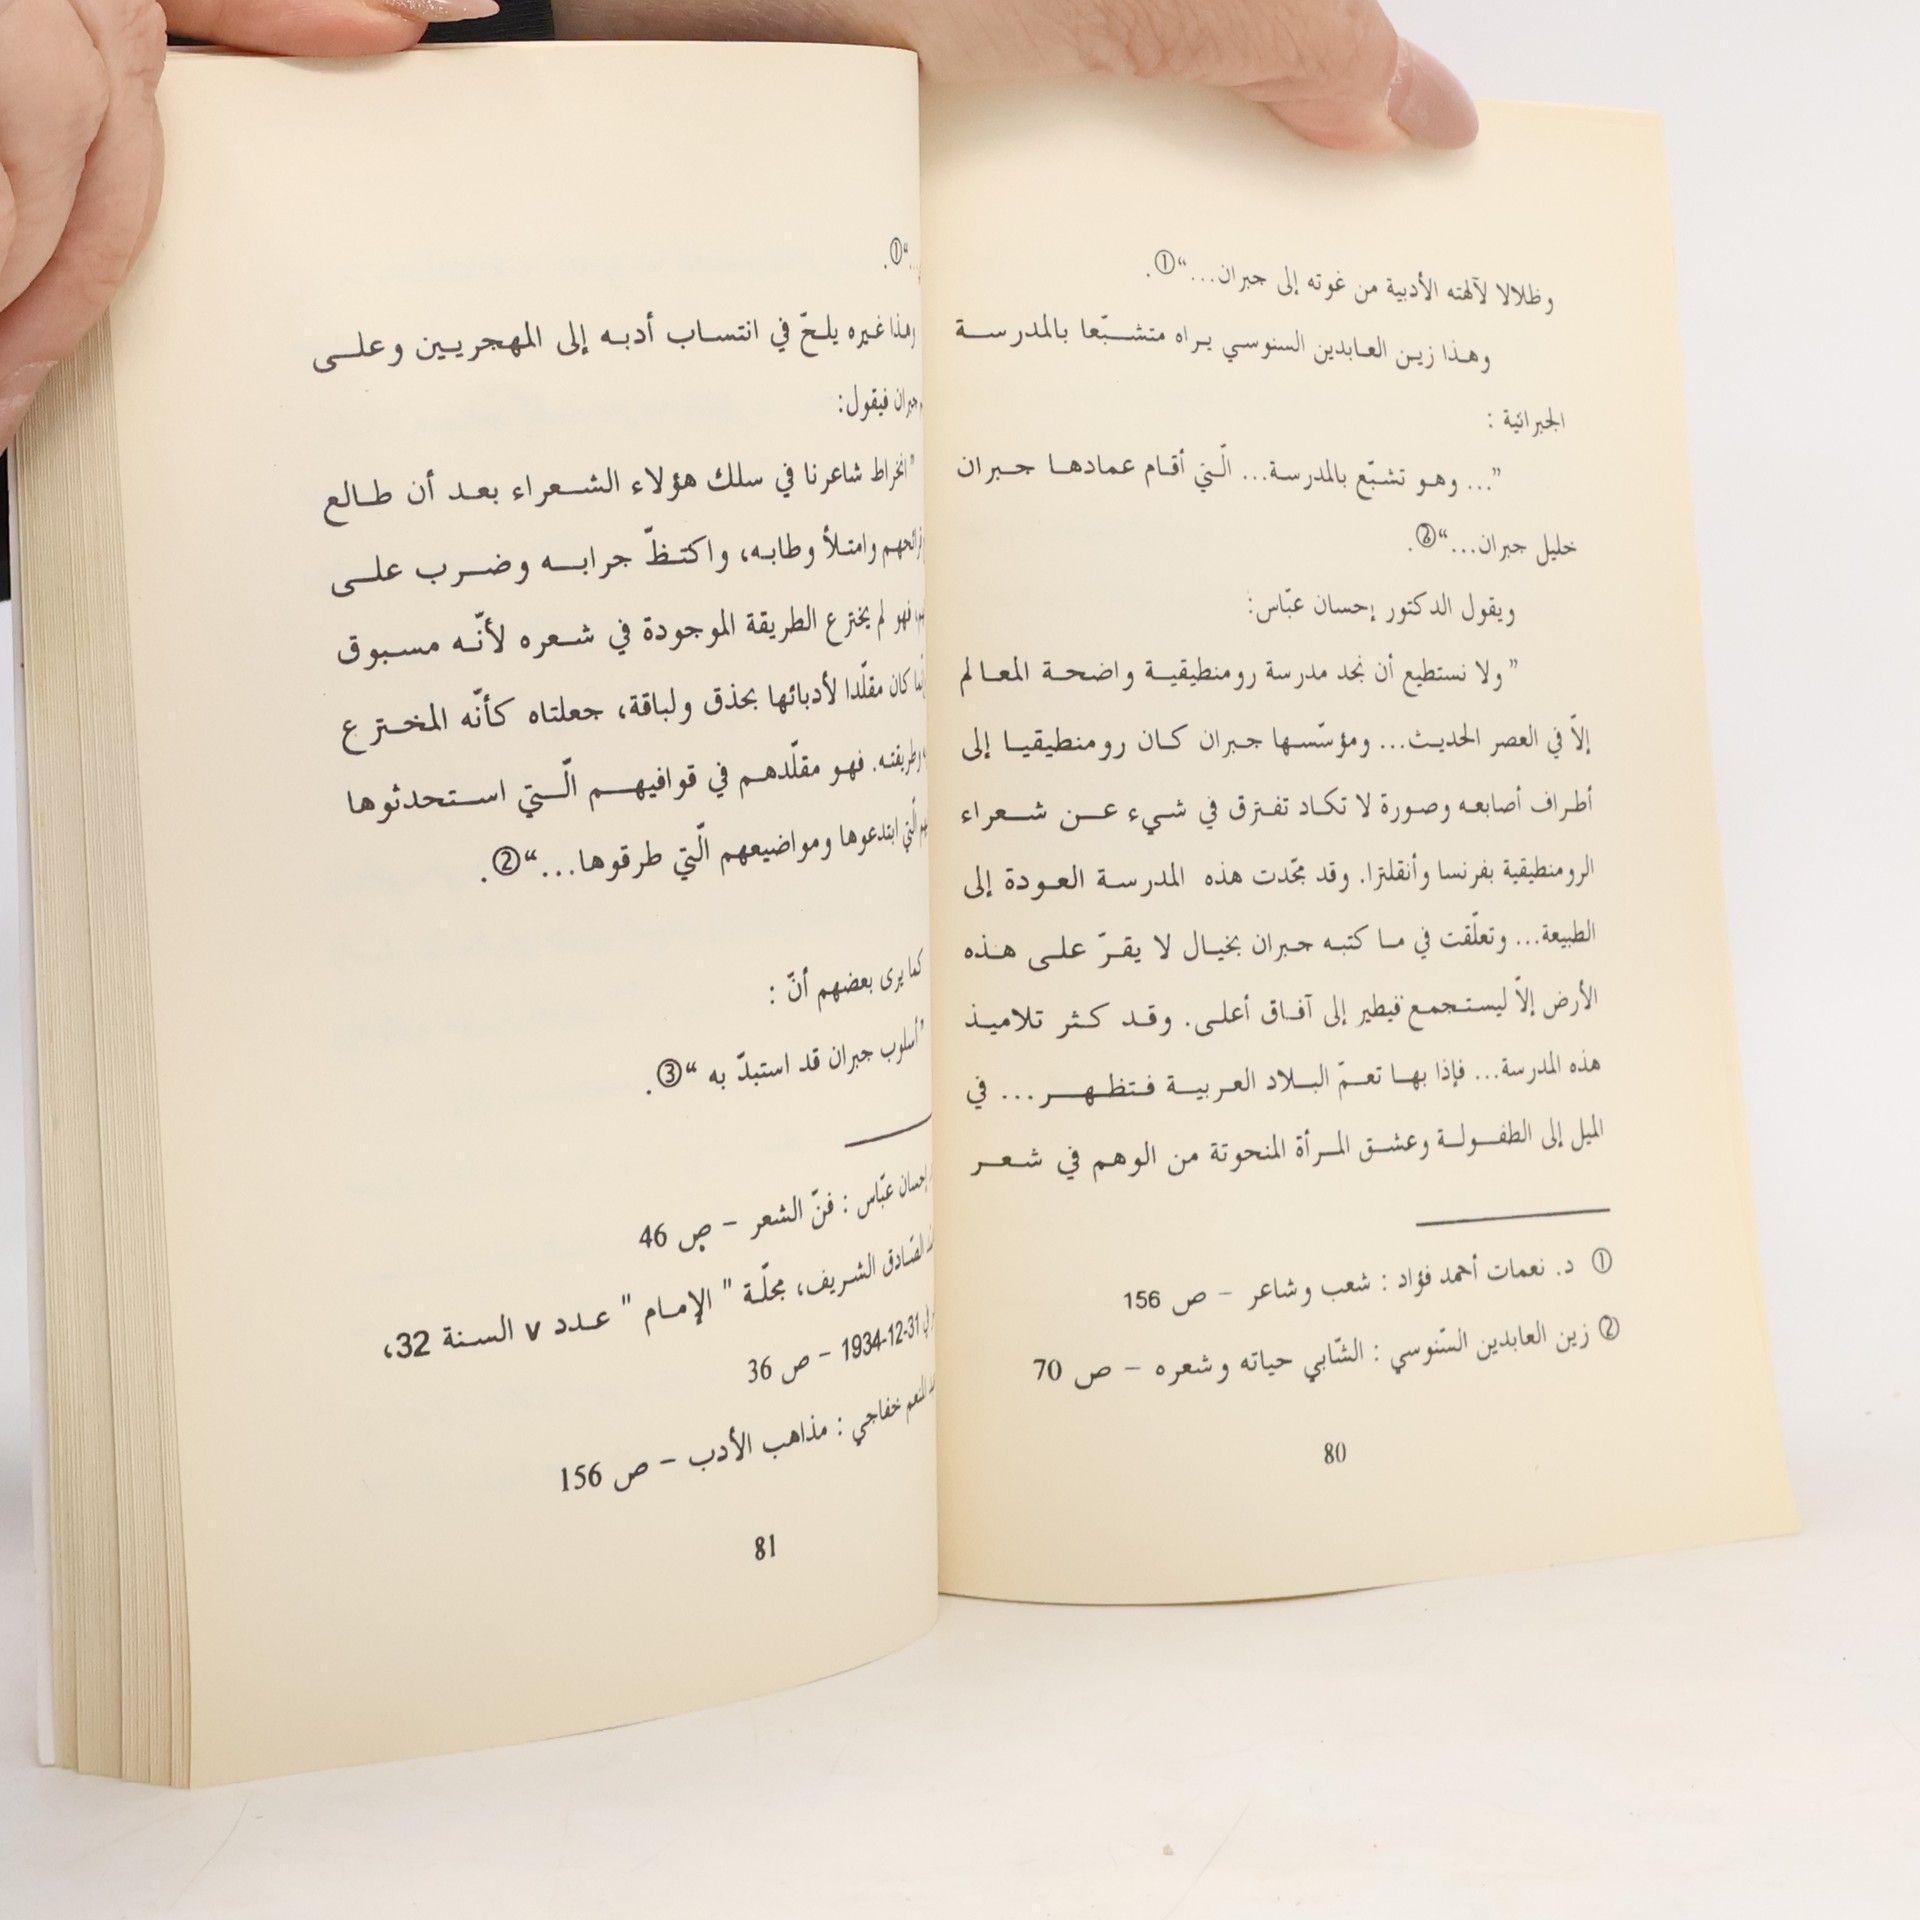 وظلالا لآلهته الأدبية من غوته إلى جبران...“①.
وهذا زين العابدين السنوسي يراه متشبّعا بالمدرسة
الجبرانية :
”... وهو تشبّع بالمدرسة... الّتي أقام عمادها جبران
خليل جبران...“②.
ويقول الدكتور إحسان عبّاس:
”ولا نستطيع أن نجد مدرسة رومنطيقية واضحة المعالم
إلاّ في العصر الحديث... ومؤسّسها جبران كان رومنطيقيا إلى
أطراف أصابعه وصورة لا تكاد تفترق في شيء عن شعراء
الرومنطيقية بفرنسا وأنقلترا. وقد مجّدت هذه المدرسة العودة إلى
الطبيعة... وتعلّقت في ما كتبه جبران بخيال لا يقرّ على هذه
الأرض إلاّ ليستجمع فيطير إلى آفاق أعلى. وقد كثر تلاميذ
هذه المدرسة... فإذا بها تعمّ البلاد العربية فتظهر... في
الميل إلى الطفولة وعشق المرأة المنحوتة من الوهم في شعر
① د. نعمات أحمد فؤاد : شعب وشاعر – ص 156
② زين العابدين السّنوسي : الشّابي حياته وشعره – ص 70
80
..“①.
وهذا غيره يلحّ في انتساب أدبه إلى المهجريين وعلى
جبران فيقول:
”انخراط شاعرنا في سلك هؤلاء الشعراء بعد أن طالع
وامتلأ وطابه، واكتظّ جرابه وضرب على
فهو لم يخترع الطريقة الموجودة في شعره لأنّه مسبوق
كان مقلّدا لأدبائها بحذق ولباقة، جعلتاه كأنّه المخترع
وطريقته. فهو مقلّدهم في قوافيهم الّتي استحدثوها
الّتي ابتدعوها ومواضيعهم الّتي طرقوها...“②.
كما يرى بعضهم أنّ :
”أسلوب جبران قد استبدّ به “③.
إحسان عبّاس : فنّ الشعر – ص 46
الصّادق الشريف، مجلّة " الإمام " عدد ٧ السنة 32،
31-12-1934 – ص 36
المنعم خفاجي : مذاهب الأدب – ص 156
81